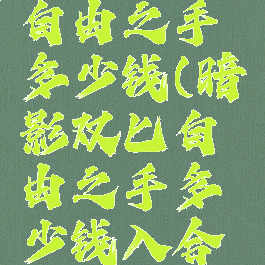 自由之手
多少钱(暗
影双匕自
由之手多
少钱入合